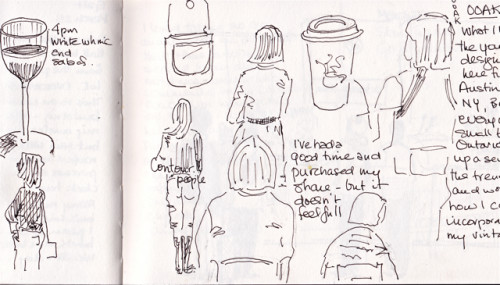 4pm
white wine
end
sales.
contour
people
I've had a
good time and
purchased my
share - but it
doesn't
feel full
OOAK
What I
the you
design
here f
Austin
NY, B
every
smell
Ontario
up a se
the tren
and we
how I c
incorpora
my vint